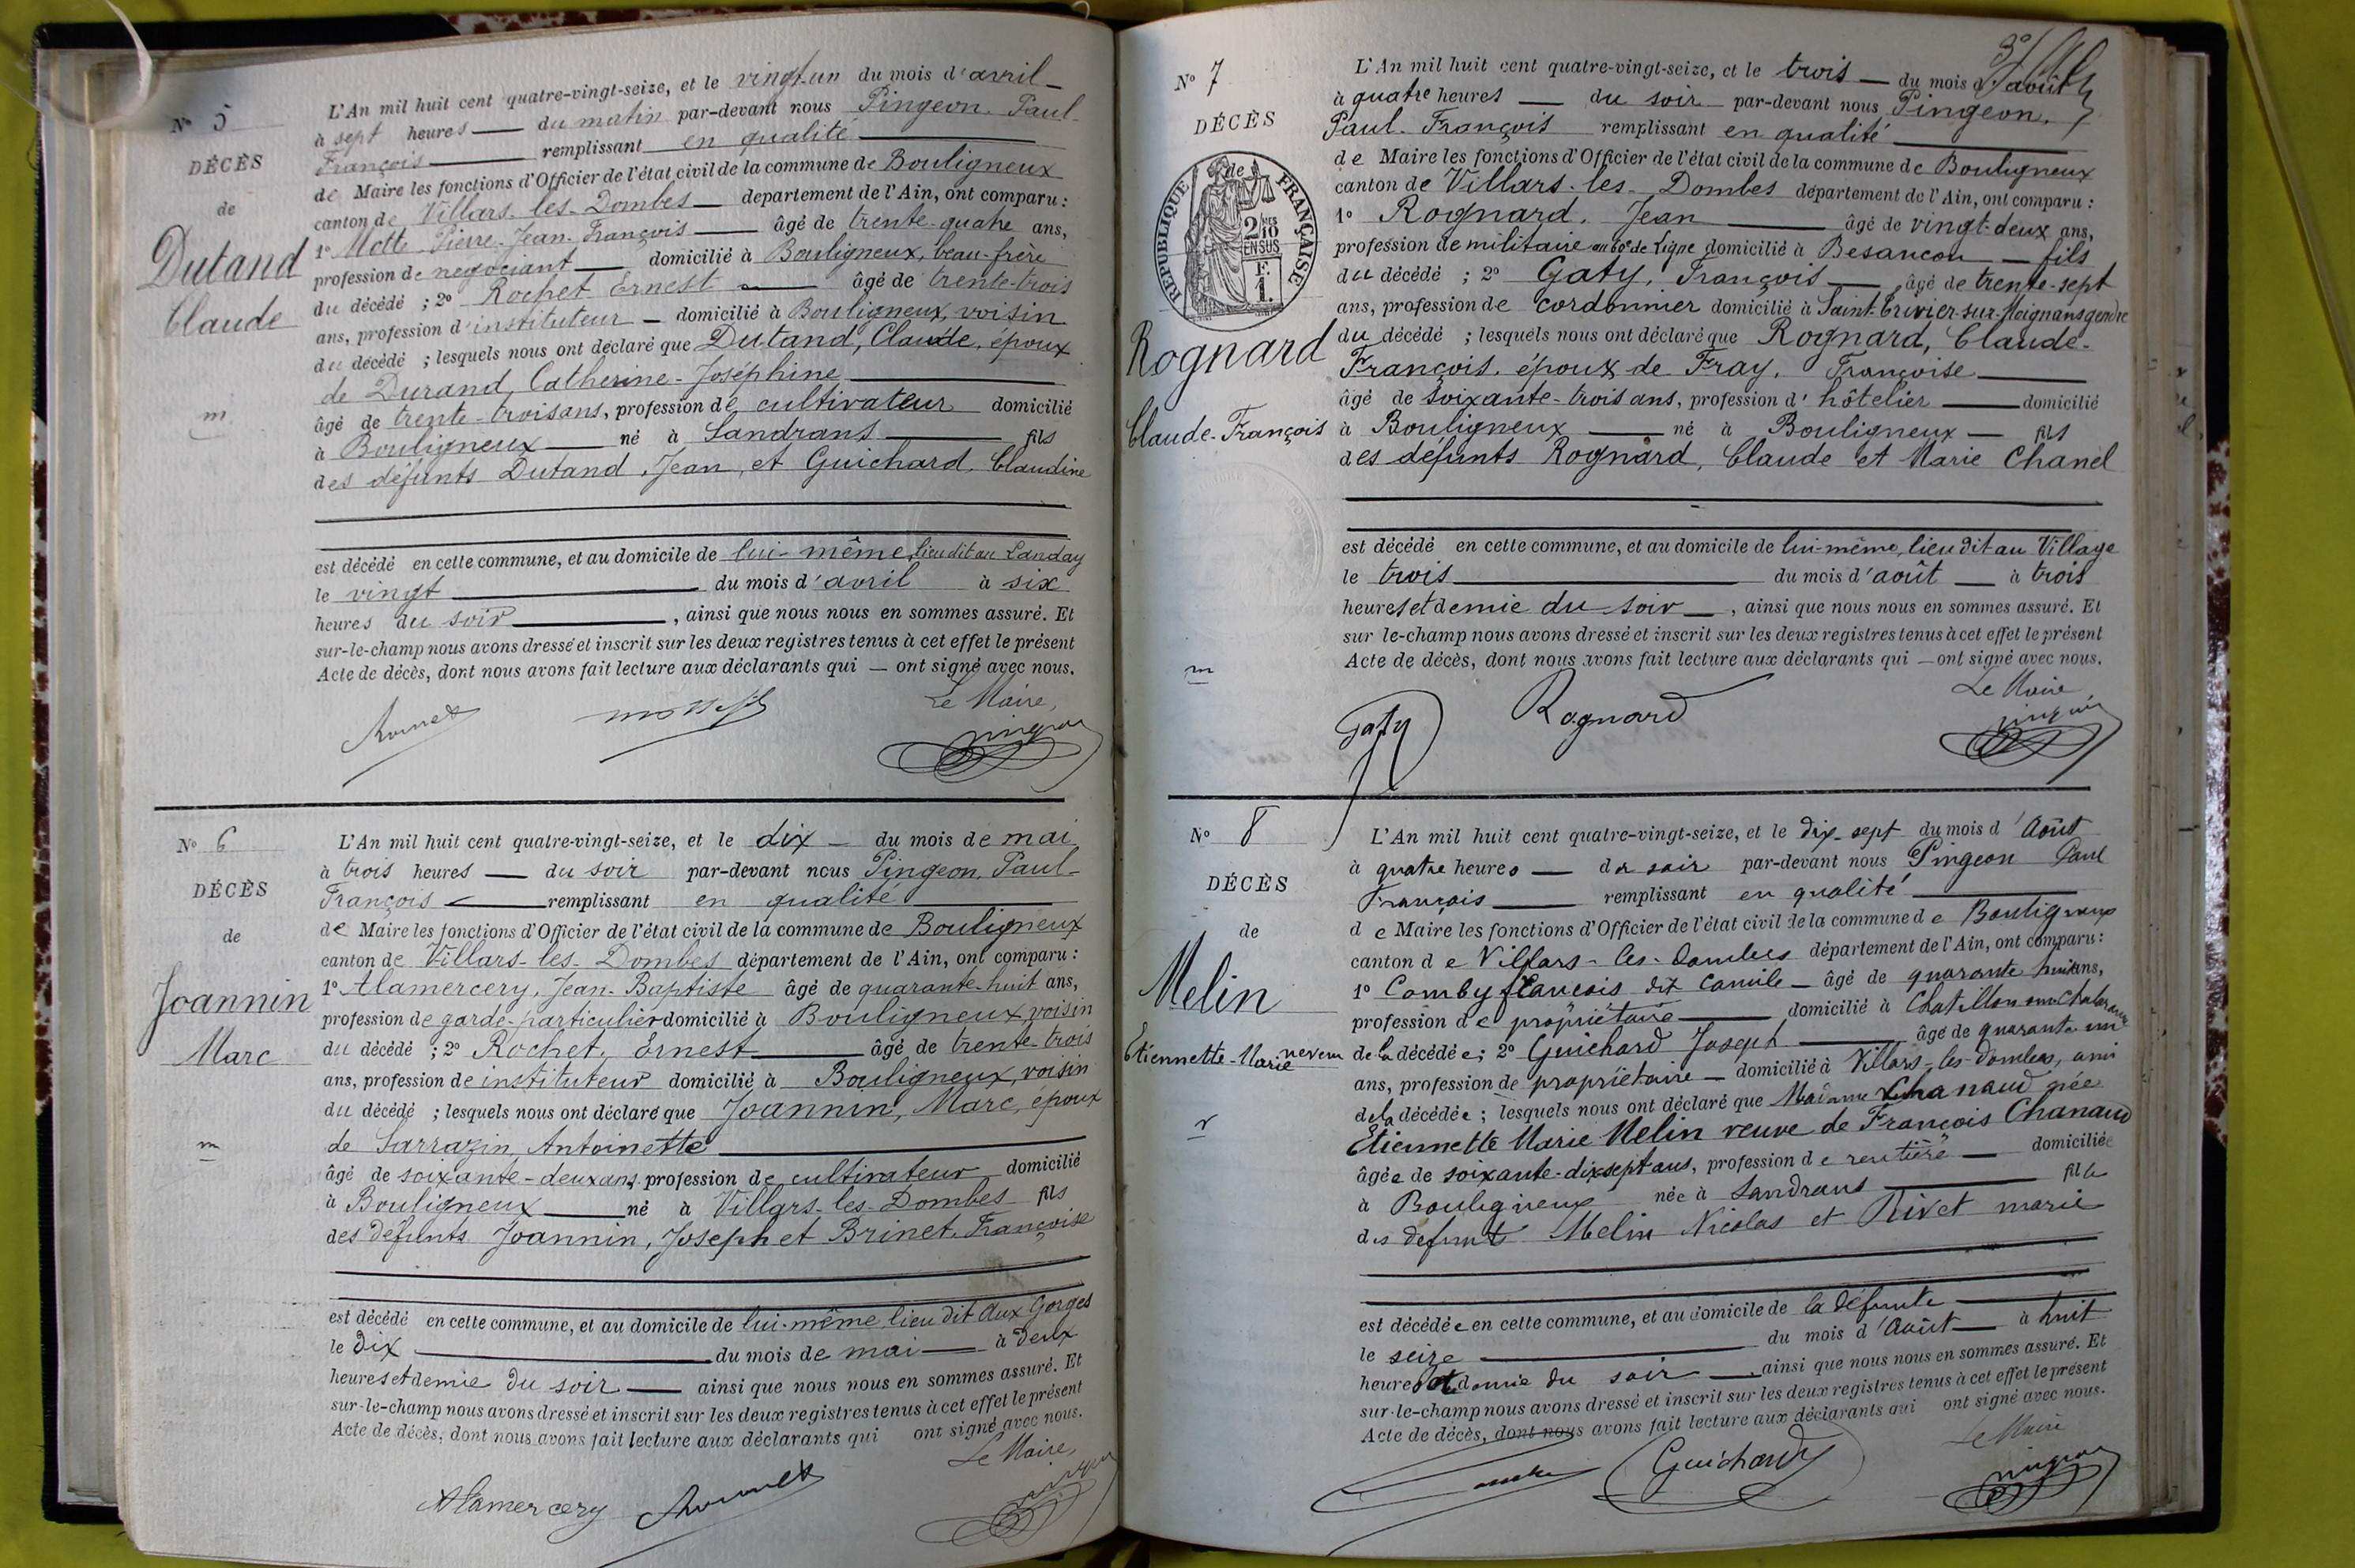 N° 5
DÉCÈS
de
Dutand
Claude
m
L'An mil huit cent quatre-vingt-seize, et le vingt-un du mois d'avril
à sept heures du matin par-devant nous Pingeon, Paul-
François remplissant en qualité
de Maire les fonctions d'Officier de l'état civil de la commune de Bouligneux
canton de Villars-les-Dombes département de l'Ain, ont comparu :
1° Mette Pierre-Jean-François âgé de trente-quatre ans,
profession de négociant domicilié à Bouligneux, beau-frère
du décédé ; 2° Rochet Ernest âgé de trente-trois
ans, profession d'instituteur domicilié à Bouligneux, voisin
du décédé ; lesquels nous ont déclaré que Dutand, Claude, époux
de Durand, Catherine-Joséphine
âgé de trente-trois ans, profession de cultivateur domicilié
à Bouligneux né à Sandrans fils
des défunts Dutand, Jean, et Guichard, Claudine
est décédé en cette commune, et au domicile de lui-même, lieu dit au Landay
le vingt du mois d'avril à six
heures du soir, ainsi que nous nous en sommes assuré. Et
sur-le-champ nous avons dressé et inscrit sur les deux registres tenus à cet effet le présent
Acte de décès, dont nous avons fait lecture aux déclarants qui — ont signé avec nous.
Le Maire,
Pingeon
N° 6
DÉCÈS
de
Joannin
Marc
m
L'An mil huit cent quatre-vingt-seize, et le dix du mois de mai
à trois heures du soir par-devant nous Pingeon, Paul-
François remplissant en qualité
de Maire les fonctions d'Officier de l'état civil de la commune de Bouligneux
canton de Villars-les-Dombes département de l'Ain, ont comparu :
1° Alamercery, Jean-Baptiste âgé de quarante-huit ans,
profession de garde-particulier domicilié à Bouligneux, voisin
du décédé ; 2° Rochet, Ernest âgé de trente-trois
ans, profession de instituteur domicilié à Bouligneux, voisin
du décédé ; lesquels nous ont déclaré que Joannin, Marc, époux
de Sarrazin, Antoinette
âgé de soixante-deux ans, profession de cultivateur domicilié
à Bouligneux né à Villars-les-Dombes fils
des défunts Joannin, Joseph et Brinet, Françoise
est décédé en cette commune, et au domicile de lui-même, lieu dit Aux Gorges
le dix du mois de mai à deux
heures et demie du soir ainsi que nous nous en sommes assuré. Et
sur-le-champ nous avons dressé et inscrit sur les deux registres tenus à cet effet le présent
Acte de décès, dont nous avons fait lecture aux déclarants qui ont signé avec nous.
Le Maire,
Alamercery
Pingeon
N° 7
DÉCÈS
de
RÉPUBLIQUE FRANÇAISE
2 10 EN SUS
F. 1.
Rognard
Claude-François
m
L'An mil huit cent quatre-vingt-seize, et le trois du mois d'août
à quatre heures du soir par-devant nous Pingeon,
Paul-François remplissant en qualité
de Maire les fonctions d'Officier de l'état civil de la commune de Bouligneux
canton de Villars-les-Dombes département de l'Ain, ont comparu :
1° Rognard, Jean âgé de vingt-deux ans,
profession de militaire au de Ligne domicilié à Besançon fils
du décédé ; 2° Gaty, François âgé de trente-sept
ans, profession de cordonnier domicilié à Saint-Trivier-sur-Moignans gendre
du décédé ; lesquels nous ont déclaré que Rognard, Claude-
François, époux de Fray, Françoise
âgé de soixante-trois ans, profession d'hôtelier domicilié
à Bouligneux né à Bouligneux fils
des défunts Rognard, Claude et Marie Chanel
est décédé en cette commune, et au domicile de lui-même, lieu dit au Village
le trois du mois d'août à trois
heures et demie du soir, ainsi que nous nous en sommes assuré. Et
sur le-champ nous avons dressé et inscrit sur les deux registres tenus à cet effet le présent
Acte de décès, dont nous avons fait lecture aux déclarants qui — ont signé avec nous.
Le Maire,
Gaty
Rognard
Pingeon
N° 8
DÉCÈS
de
Melin
Etiennette-Marie
L'An mil huit cent quatre-vingt-seize, et le dix-sept du mois d'Août
à quatre heures du soir par-devant nous Pingeon Paul
François remplissant en qualité
de Maire les fonctions d'Officier de l'état civil de la commune de Bouligneux
canton de Villars-les-Dombes département de l'Ain, ont comparu :
1° Comby francois dit Camile âgé de quarante huit ans,
profession de propriétaire domicilié à Chatillon sur Chalaronne
neveu de la décédée ; 2° Guichard Joseph âgé de quarante un
ans, profession de propriétaire domicilié à Villars-les-Dombes, ami
de la décédée ; lesquels nous ont déclaré que Madame Chanaud née
Etiennette Marie Melin veuve de François Chanaud
âgée de soixante-dix sept ans, profession de rentière domiciliée
à Bouligneux née à Sandrans fille
des défunts Melin Nicolas et Rivet marie
est décédée en cette commune, et au domicile de la défunte
le seize du mois d'Août à huit
heures et demie du soir, ainsi que nous nous en sommes assuré. Et
sur-le-champ nous avons dressé et inscrit sur les deux registres tenus à cet effet le présent
Acte de décès, dont nous avons fait lecture aux déclarants qui ont signé avec nous.
Le Maire
Guichard
Pingeon